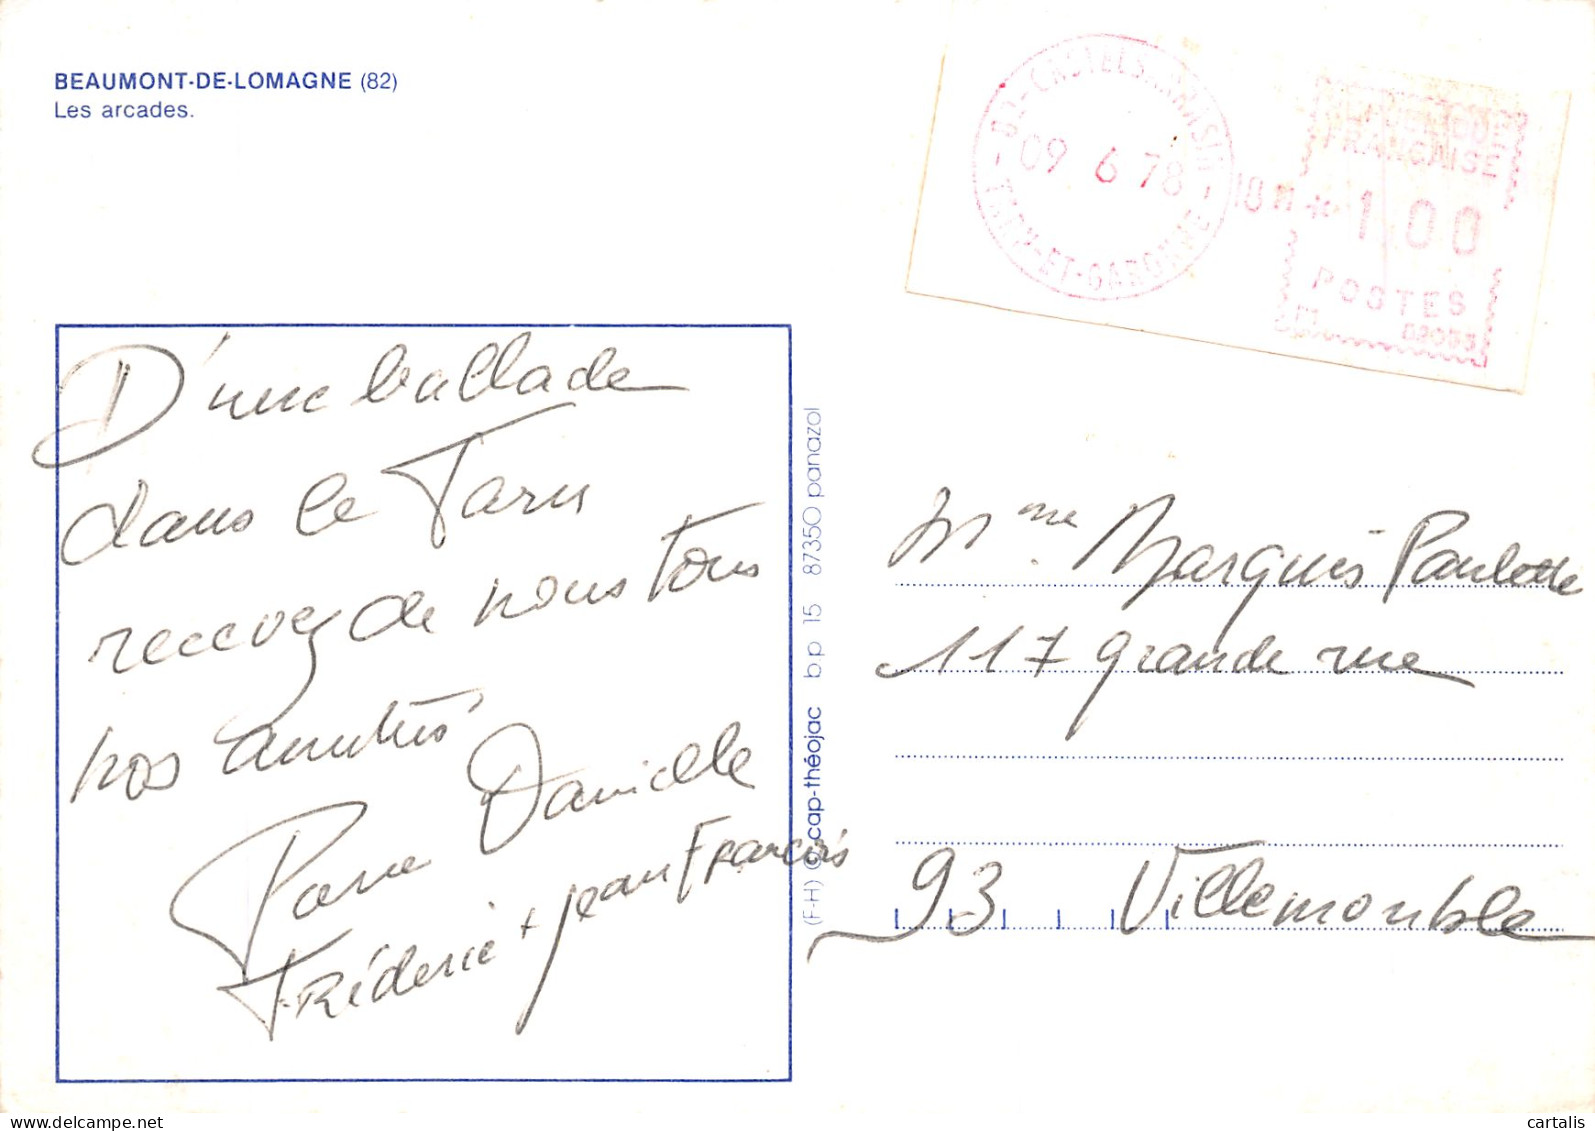 BEAUMONT-DE-LOMAGNE (82)
Les arcades.
82-CASTELSARRASIN
09 6 78
TARN-ET-GARONNE
18H
REPUBLIQUE
FRANCAISE
*1,00
POSTES
D'une ballade
dans le Tarn
recevez de nous tous
nos amitiés
Danielle
Frédéric + jean François
(F-H) © cap-théojac bp 15 87350 panazol
Mme Marquès Paulette
117 grande rue
93 Villemomble
delcampe.net
cartalis